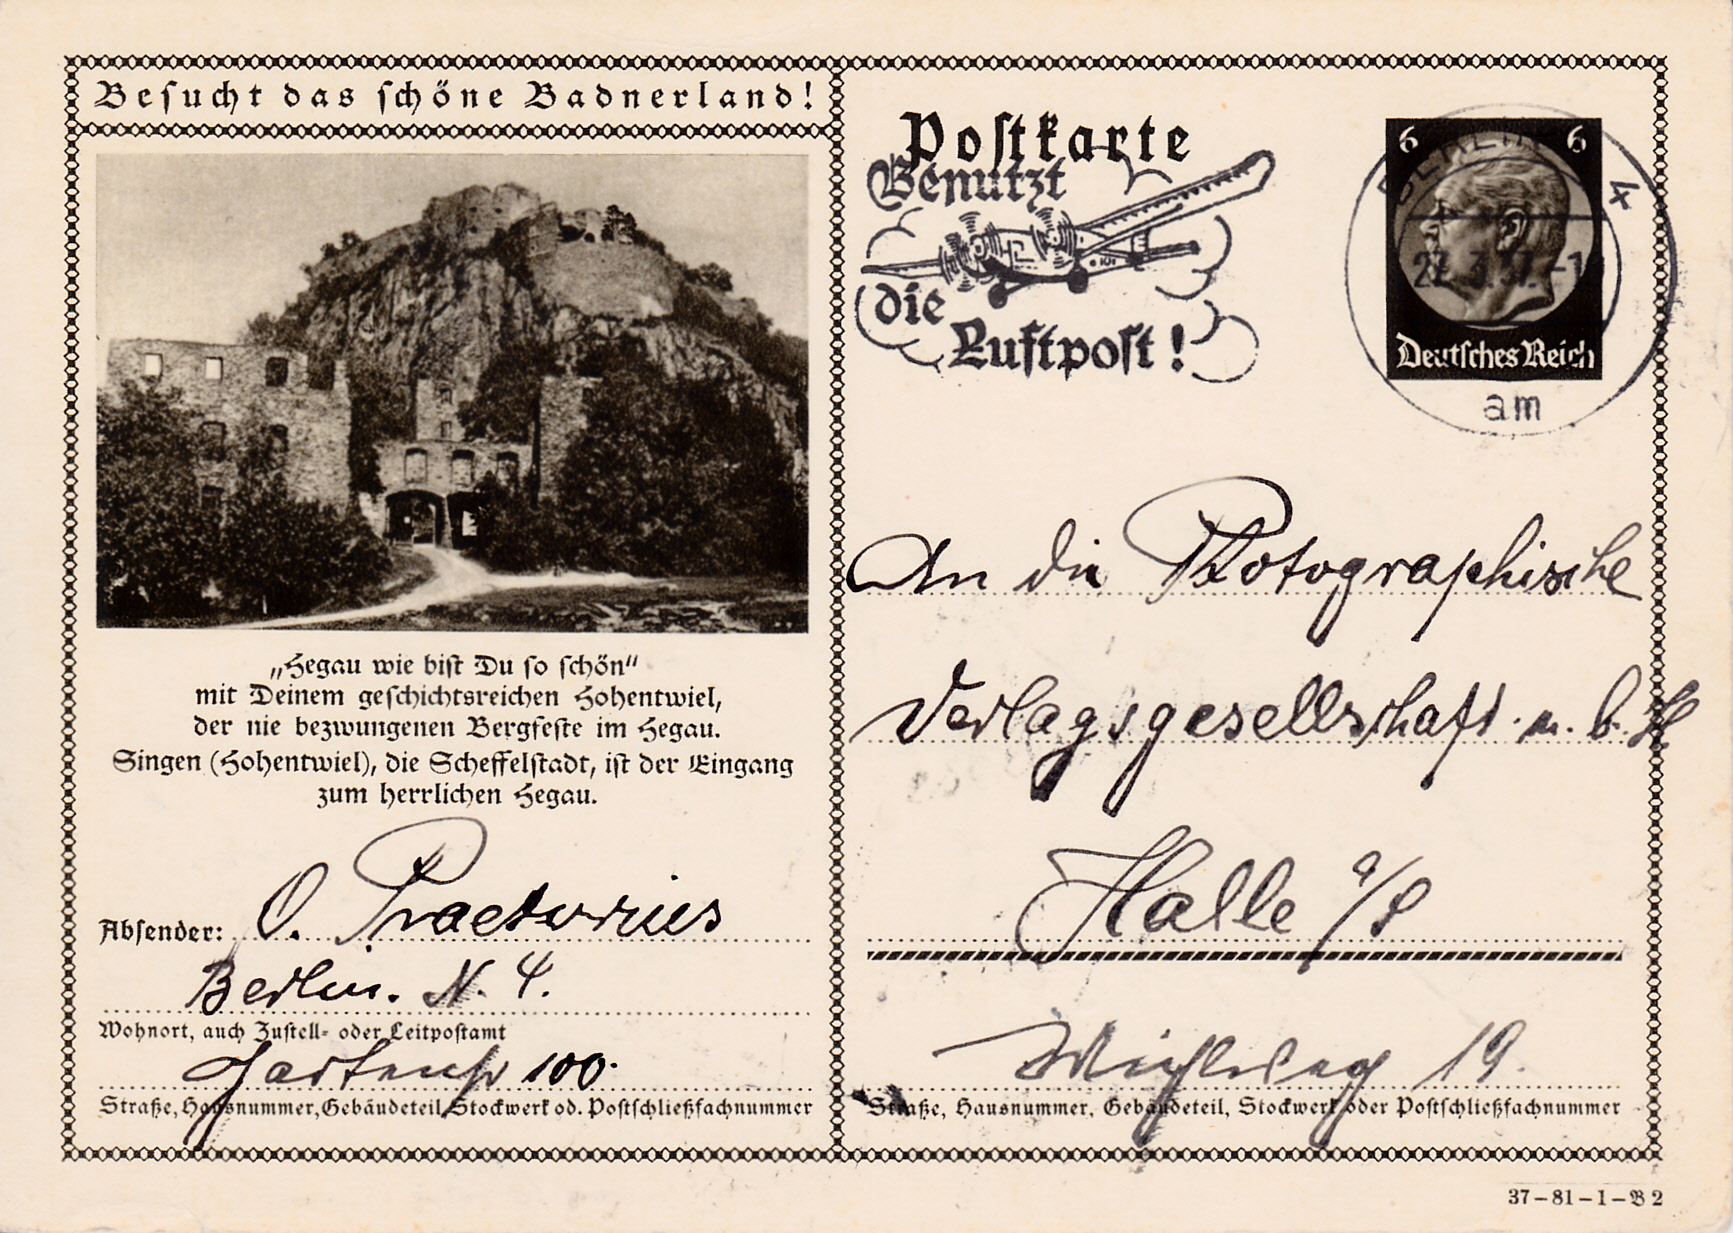 Besucht das schöne Badnerland!
„Hegau wie bist Du so schön“
mit Deinem geschichtsreichen Hohentwiel,
der nie bezwungenen Bergfeste im Hegau.
Singen (Hohentwiel), die Scheffelstadt, ist der Eingang
zum herrlichen Hegau.
Absender: O. Praetorius
Berlin. N. 4.
Wohnort, auch Zustell- oder Leitpostamt
Gartenstr 100.
Straße, Hausnummer, Gebäudeteil, Stockwerk od. Postschließfachnummer
Postkarte
Benutzt
die
Luftpost!
6 6
Deutsches Reich
BERLIN 4
am
An die Photographische
Verlagsgesellschaft m. b. H.
Halle a/S
19.
Straße, Hausnummer, Gebäudeteil, Stockwerk oder Postschließfachnummer
37-81-1-B 2